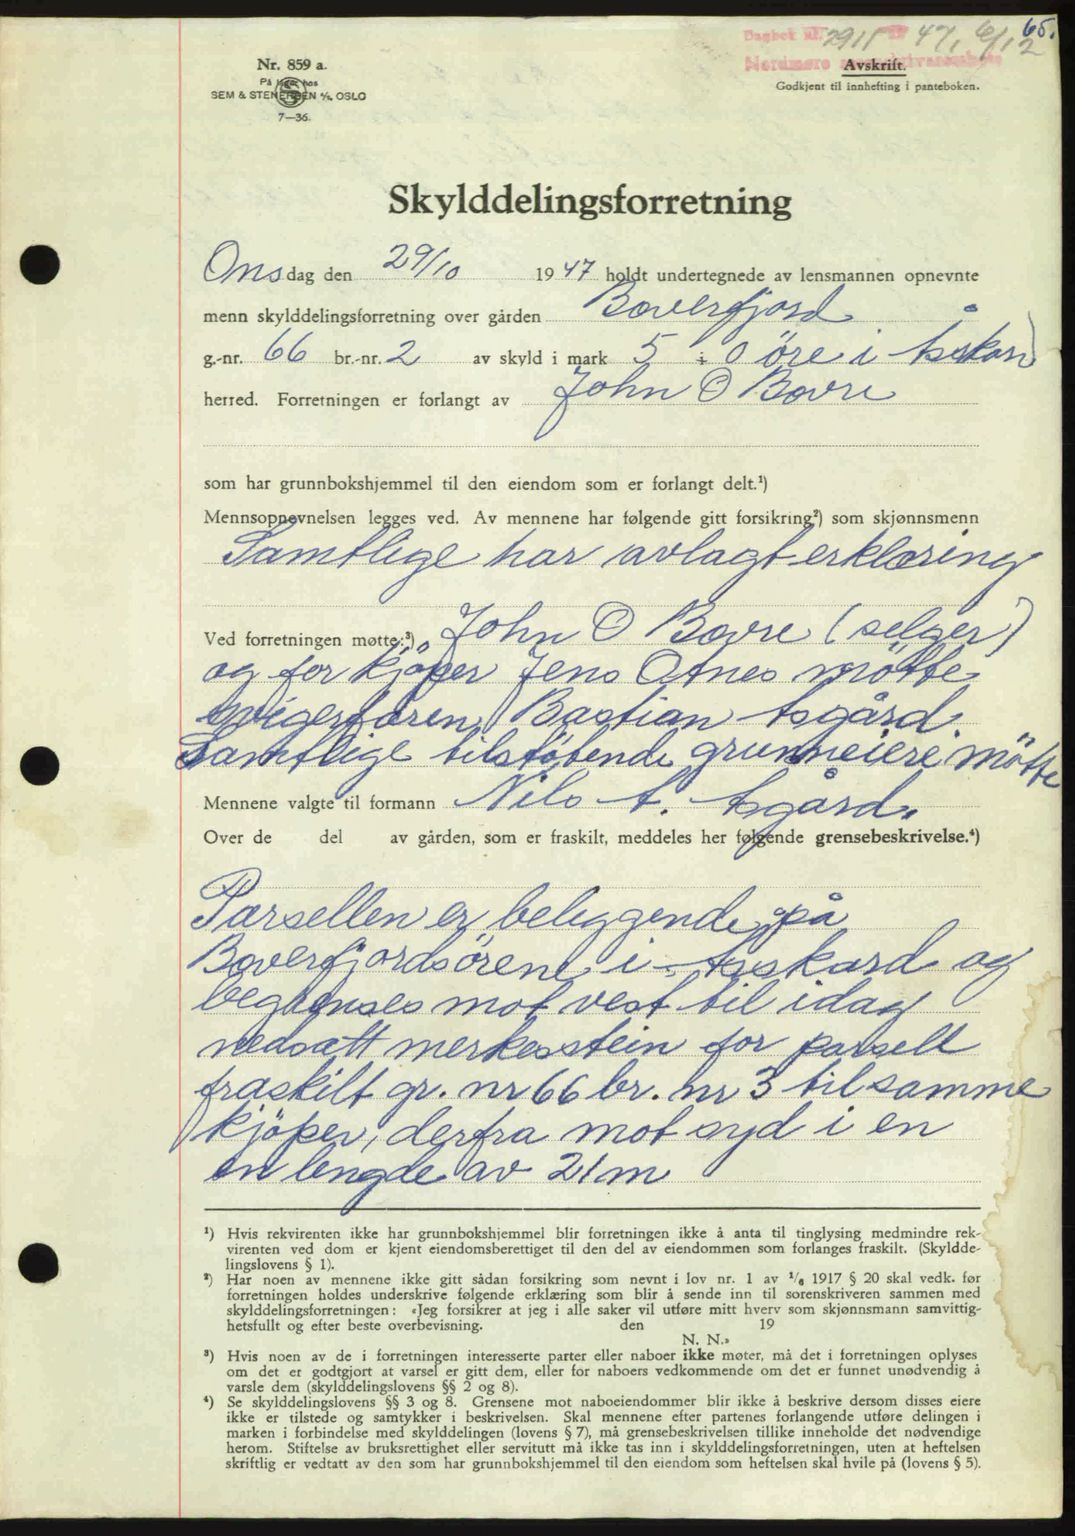 65.
Dagbok nr. 2915 1947, 6/12
Nordmøre sorenskriverembete
Nr. 859 a.
På lager hos
SEM & STENERSEN A/S, OSLO
7—36.
Avskrift.
Godkjent til innhefting i panteboken.
Skylddelingsforretning
Onsdag den 29/10 1947 holdt undertegnede av lensmannen opnevnte
menn skylddelingsforretning over gården Bøverfjord
g.-nr. 66 br.-nr. 2 av skyld i mark 5 + 0 øre i Åsskard
herred. Forretningen er forlangt av John O Bøvre
som har grunnbokshjemmel til den eiendom som er forlangt delt.¹)
Mennsopnevnelsen legges ved. Av mennene har følgende gitt forsikring²) som skjønnsmenn
Samtlige har avlagt erklæring
Ved forretningen møtte:³) John O Bøvre (selger)
og for kjöper Jens Otnes mötte
svigerfaren, Bastian Åsgård.
Samtlige tilstøtende grunneiere mötte
Mennene valgte til formann Nils A. Åsgård.
Over de del av gården, som er fraskilt, meddeles her følgende grensebeskrivelse.⁴)
Parsellen er beliggende på
Bøverfjordsörene i Åsskard og
begrenses mot vest til idag
nedsatt merkesstein for parsell
fraskilt gr. nr 66 br. nr 3 til samme
kjöper, derfra mot syd i en
en lengde av 21 m
¹) Hvis rekvirenten ikke har grunnbokshjemmel blir forretningen ikke å anta til tinglysing medmindre rek-
virenten ved dom er kjent eiendomsberettiget til den del av eiendommen som forlanges fraskilt. (Skyldde-
lingslovens § 1).
²) Har noen av mennene ikke gitt sådan forsikring som nevnt i lov nr. 1 av ¹/₆ 1917 § 20 skal vedk. før
forretningen holdes underskrive følgende erklæring som blir å sende inn til sorenskriveren sammen med
skylddelingsforretningen: «Jeg forsikrer at jeg i alle saker vil utføre mitt hverv som skjønnsmann samvittig-
hetsfullt og efter beste overbevisning. den 19
N. N.»
³) Hvis noen av de i forretningen interesserte parter eller naboer ikke møter, må det i forretningen oplyses
om det er godtgjort at varsel er gitt dem, eller for naboers vedkommende om det er funnet unødvendig å
varsle dem (skylddelingslovens §§ 2 og 8).
⁴) Se skylddelingslovens §§ 3 og 8. Grensene mot naboeiendommer blir ikke å beskrive dersom disses eiere
ikke er tilstede og samtykker i beskrivelsen. Skal mennene efter partenes forlangende utføre delingen i
marken i forbindelse med skylddelingen (lovens § 7), må grensebeskrivelsen tillike inneholde det nødvendige
herom. Stiftelse av bruksrettighet eller servitutt må ikke tas inn i skylddelingsforretningen, uten at heftelsen
skriftlig er vedtatt av den som har grunnbokshjemmel til den eiendom som heftelsen skal hvile på (lovens § 5).